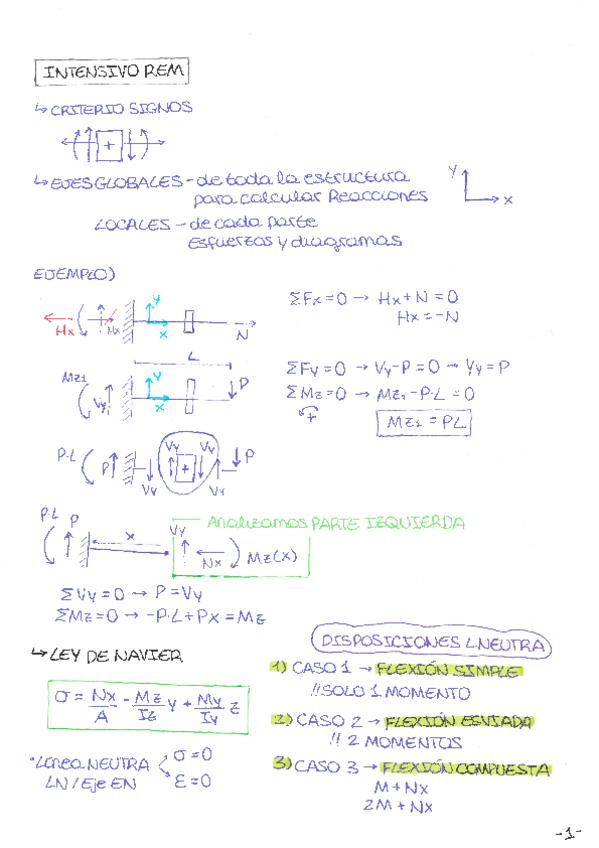 INTENSIVO REM
↳ CRITERIO SIGNOS
+
↳ EJES GLOBALES - de toda la estructura
para calcular Reacciones
Y
X
LOCALES - de cada parte
Esfuerzos y diagramas
EJEMPLO)
Hx
Nx
Y
X
N
ΣFx=0 → Hx+N=0
Hx=-N
L
Mz1
Vy
Y
X
P
ΣFy=0 → Vy-P=0 → Vy=P
ΣMz=0 → Mz1-P·L=0
+
Mz1=PL
P·L
P
Vy
Vy
Vy
+
Vy
P
P·L
P
x
Analizamos PARTE IZQUIERDA
Vy
Nx
Mz(x)
ΣVy=0 → P=Vy
ΣMz=0 → -P·L+Px=Mz
↳ LEY DE NAVIER
σ = Nx/A - Mz/Iz y + My/Iy z
•Línea NEUTRA
LN/Eje EN
σ=0
ε=0
DISPOSICIONES L.NEUTRA
1) CASO 1 → FLEXIÓN SIMPLE
!! SOLO 1 MOMENTO
2) CASO 2 → FLEXIÓN ESVIADA
!! 2 MOMENTOS
3) CASO 3 → FLEXIÓN COMPUESTA
M+Nx
2M+Nx
-1-